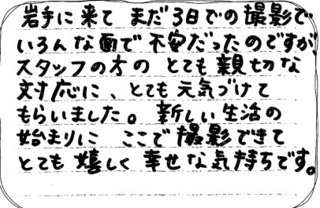 岩手に来て まだ3日での撮影で
いろんな面で不安だったのですが
スタッフの方の とても親切な
対応に、とても元気づけて
もらいました。新しい生活の
始まりに ここで撮影できて
とても嬉しく幸せな気持ちです。